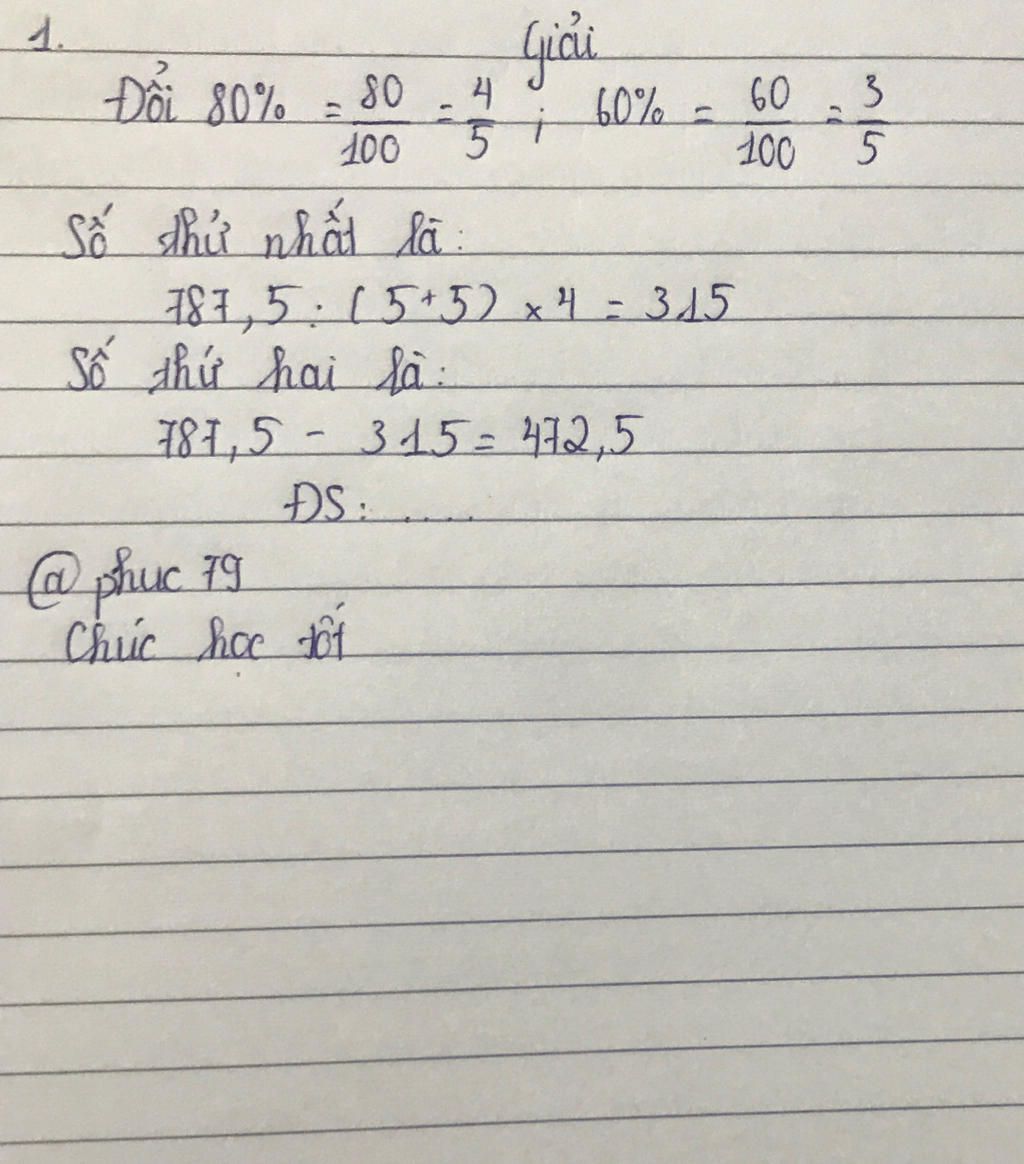 1. Giải
Đổi 80% = 80/100 = 4/5 ; 60% = 60/100 = 3/5
Số thứ nhất là:
787,5 : (5+5) x 4 = 315
Số thứ hai là:
787,5 - 315 = 472,5
ĐS: .....
@phuc 79
Chúc học tốt